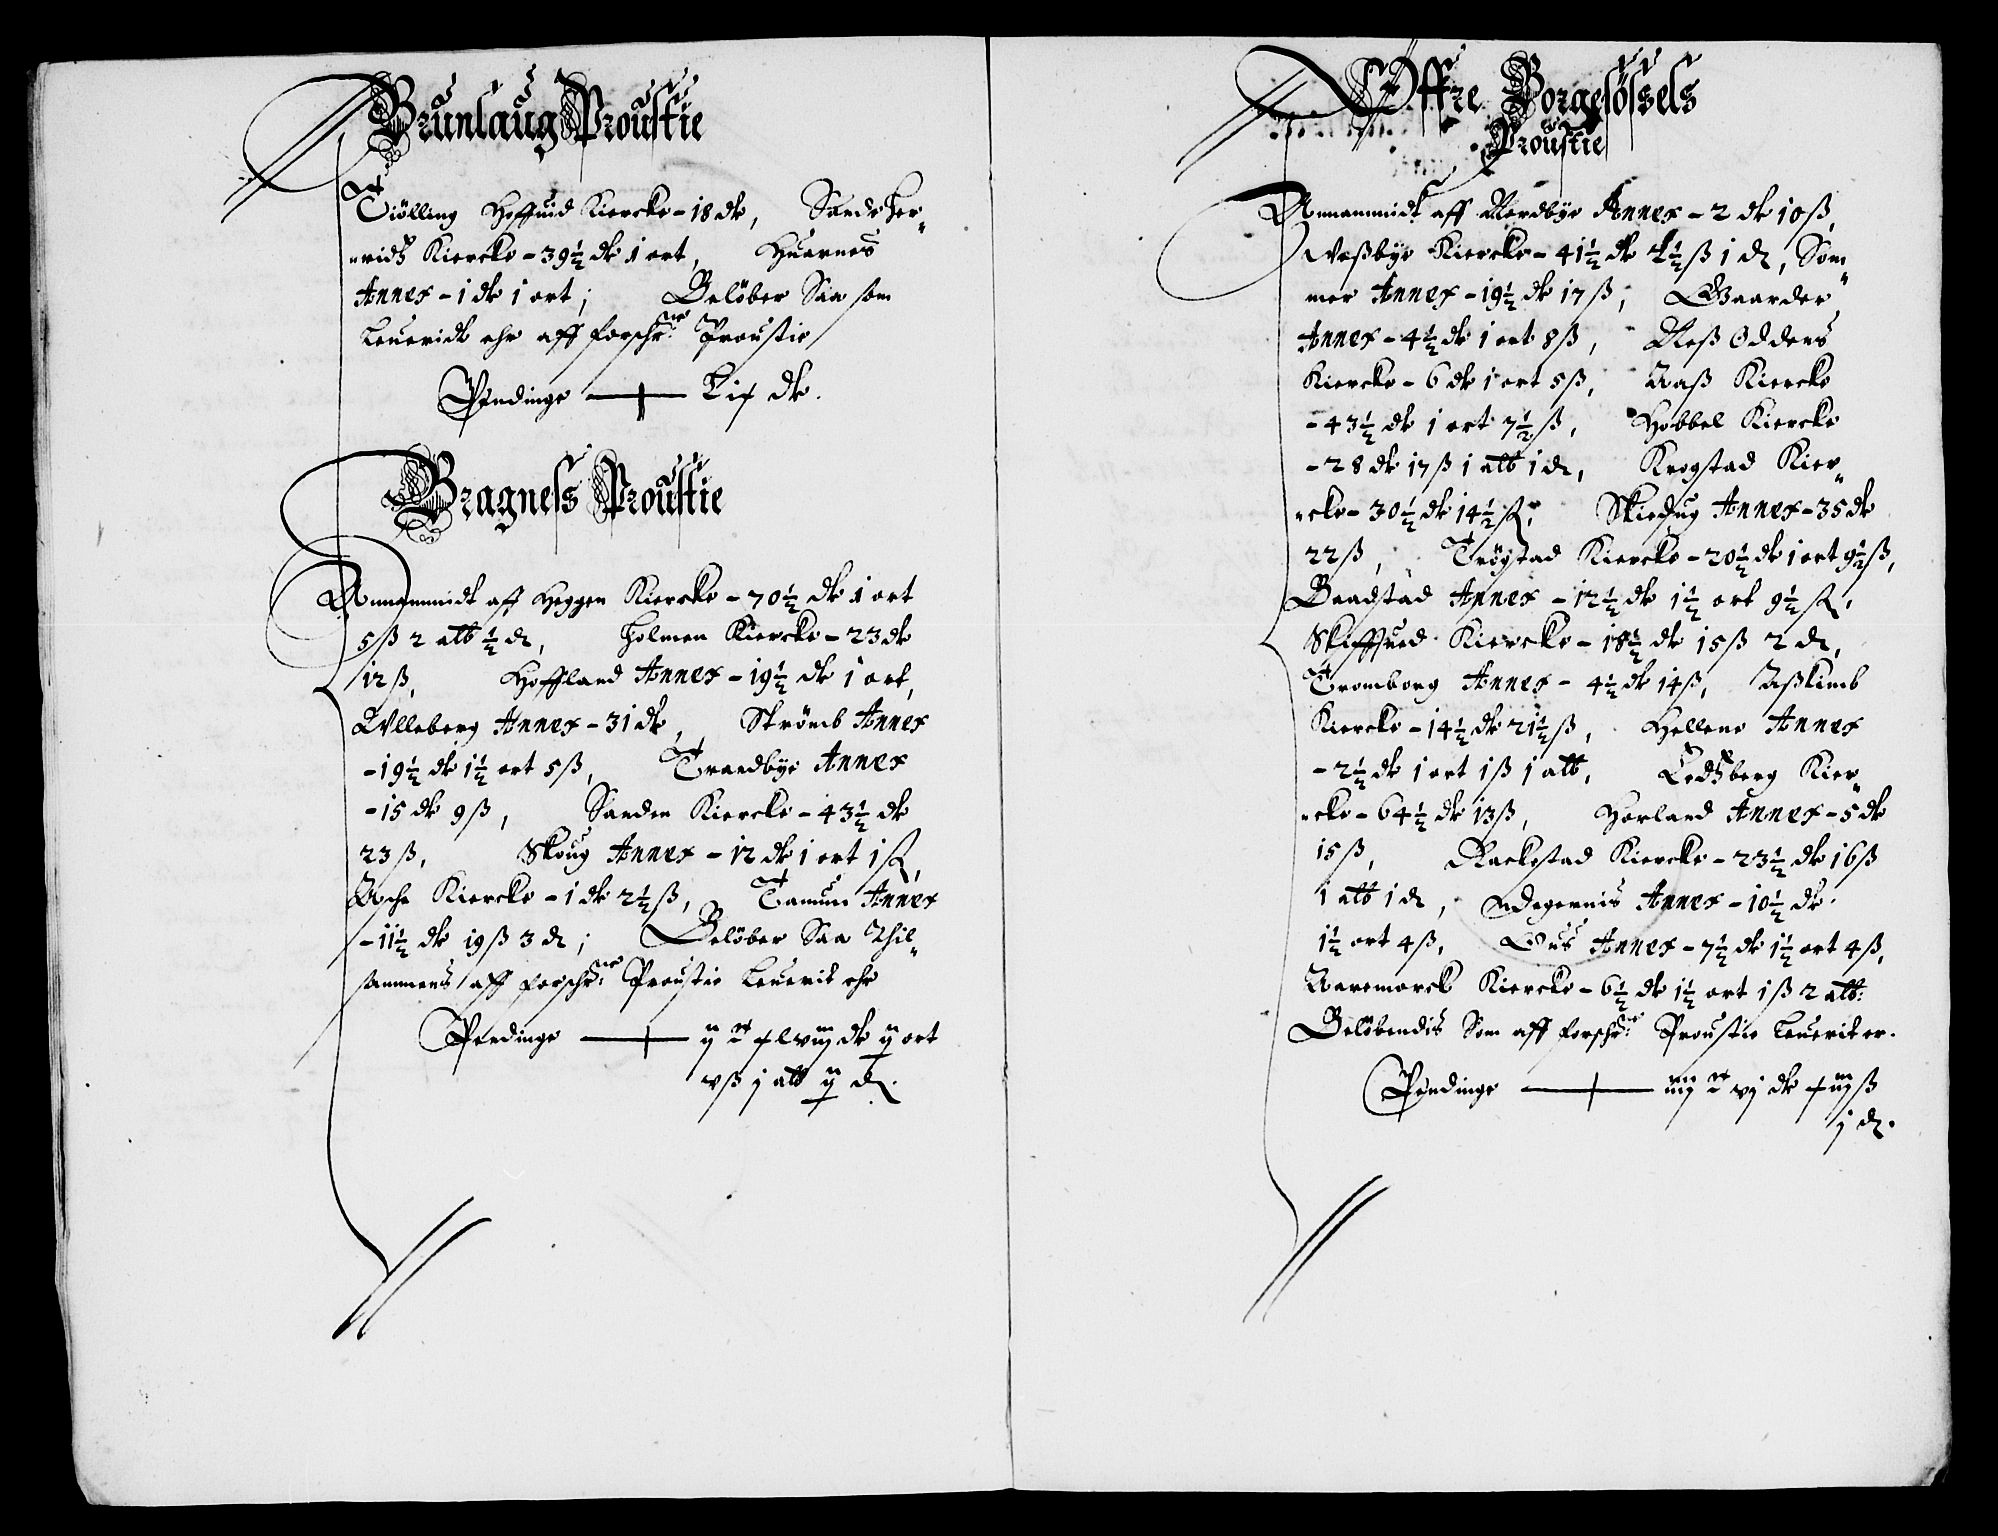 Brunlaug Proustie
Tiölling Hoffuid Kiercke - 18 dr, Sandeher-
uridtz Kiercke - 39½ dr 1 ort, Huarnes
Annex - 1 dr 1 ort; Belöber Saa som
Leueridt ehr aff forschr:ne Proustie
Pendinge — Lix dr.
Bragness Proustie
Annammidt aff Heggen Kiercke - 70½ dr 1 ort
5 ß 2 alb ½ d, Holmen Kiercke - 23 dr
12 ß, Hoffland Annex - 19½ dr 1 ort,
Ulleberg Annex - 31 dr, Strömb Annex
- 19½ dr 1½ ort 5 ß, Trandbye Annex
- 15 dr 9 ß, Sanden Kiercke - 43½ dr
23 ß, Skoug Annex - 12 dr 1 ort 1 ß,
Asche Kiercke - 1 dr 2½ ß, Tamum Annex
- 11½ dr 19 ß 3 d; Belöber Saa Thil-
sammens aff forschr:ne Proustie Leuerit ehr
Pendinge — ij c xlviij dr ij ort
vß j alb ij d.
Öffre Borgesössels
Proustie
Annammidt aff Nordbye Annex - 2 dr 10 ß,
Weßbye Kiercke - 41½ dr ß 1 d, Som-
mer Annex - 19½ dr 17 ß, Gaarder
Annex - 4½ dr 1 ort 8 ß, Neß Oddens
Kiercke - 6 dr 1 ort 5 ß, Aaß Kiercke
- 43½ dr 1 ort 7½ ß, Hobbel Kiercke
- 28 dr 17 ß 1 alb 1 d, Krogstad Kier-
cke - 30½ dr 14½ ß, Skiedug Annex - 35 dr
22 ß, Trögstad Kiercke - 20½ dr 1 ort 9½ ß,
Baadstad Annex - 12½ dr 1½ ort 9½ ß,
Skiffued Kiercke - dr 15 ß 2 d,
Tromborg Annex - 4½ dr 14 ß, Aßkimb
Kiercke - 14½ dr 21½ ß, Hellene Annex
- 2½ dr 1 ort 1 ß 1 alb, Eedtzberg Kier-
cke - 64½ dr 13 ß, Herland Annex - 5 dr
15 ß, Rackestad Kiercke - 23½ dr 16 ß
1 alb 1 d, Degernis Annex - 10½ dr
1½ ort 4 ß, Öus Annex - 7½ dr 1½ ort 4 ß,
Aaremarck Kiercke - 6½ dr 1½ ort 1 ß 2 alb:
Belöbendis Som aff forschr:ne Proustie Leuerit er.
Pendinge — iiij c vj dr xiij ß
j d.